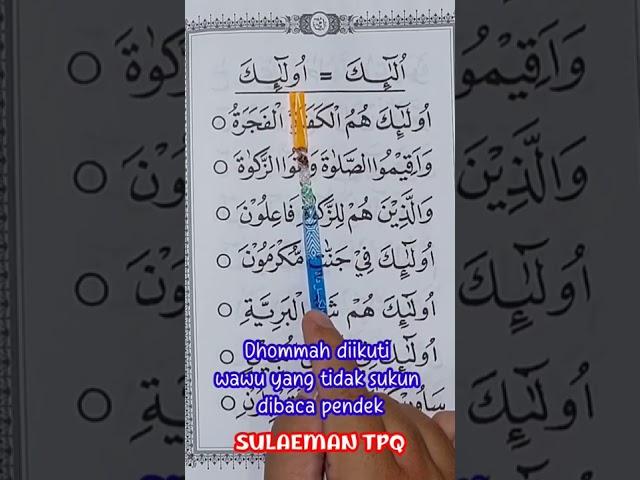 اُلٰٓئِكَ = اُولٰٓئِكَ
اُولٰٓئِكَ هُمُ الْكَفَرَةُ الْفَجَرَةُ
وَاَقِيْمُوا الصَّلٰوةَ وَاٰتُوا الزَّكٰوةَ
وَالَّذِيْنَ هُمْ لِلزَّكٰوةِ فَاعِلُوْنَ
اُولٰٓئِكَ فِيْ جَنّٰتٍ مُّكْرَمُوْنَ
اُولٰٓئِكَ هُمْ شَرُّ الْبَرِيَّةِ
اُولٰٓئِكَ
Dhommah diikuti
wawu yang tidak sukun
dibaca pendek
SULAEMAN TPQ